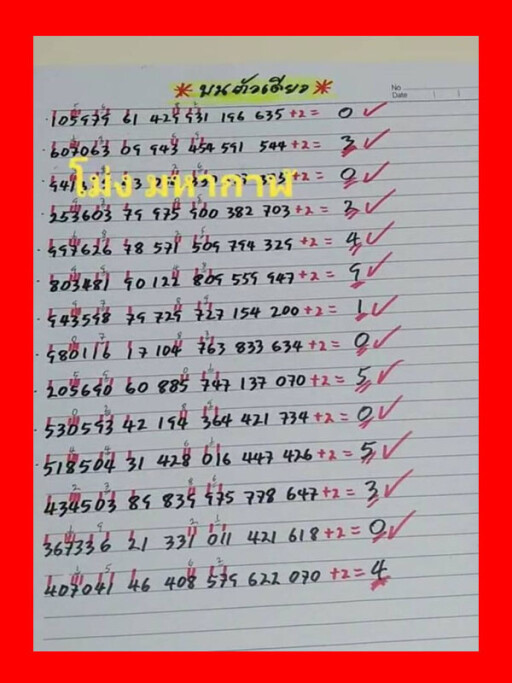 * บนตัวเดียว *
No
Date
105979 61 429 931 196 635 +2 = 0 ✓
607063 09 943 454 591 544 +2 = 3 ✓
+2 = 0 ✓
โม่ง มหากาฬ
253603 79 975 900 382 703 +2 = 3 ✓
997626 78 571 509 794 329 +2 = 4 ✓
803481 90 122 809 559 947 +2 = 9 ✓
943598 79 729 727 154 200 +2 = 1 ✓
980116 17 104 763 833 634 +2 = 0 ✓
205690 60 885 747 137 070 +2 = 5 ✓
530593 42 194 364 421 734 +2 = 0 ✓
518504 31 428 016 447 426 +2 = 5 ✓
434503 89 839 975 778 647 +2 = 3 ✓
367336 21 331 011 421 618 +2 = 0 ✓
407041 46 408 579 622 070 +2 = 4